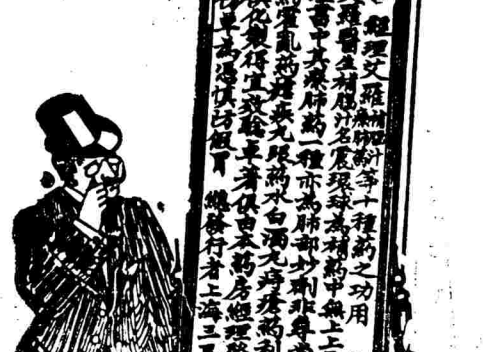 經理艾羅補腦汁療肺藥等十種藥之功用
羅醫生補腦汁名震環球為補藥中無上上
中其療肺藥一種亦為肺部妙劑非尋常
霍亂藥瘧疾丸眼藥水白濁丸痔瘡藥利
化製得宜效驗卓著俱由本藥房經理
單為憑慎防假冒 總發行者上海三